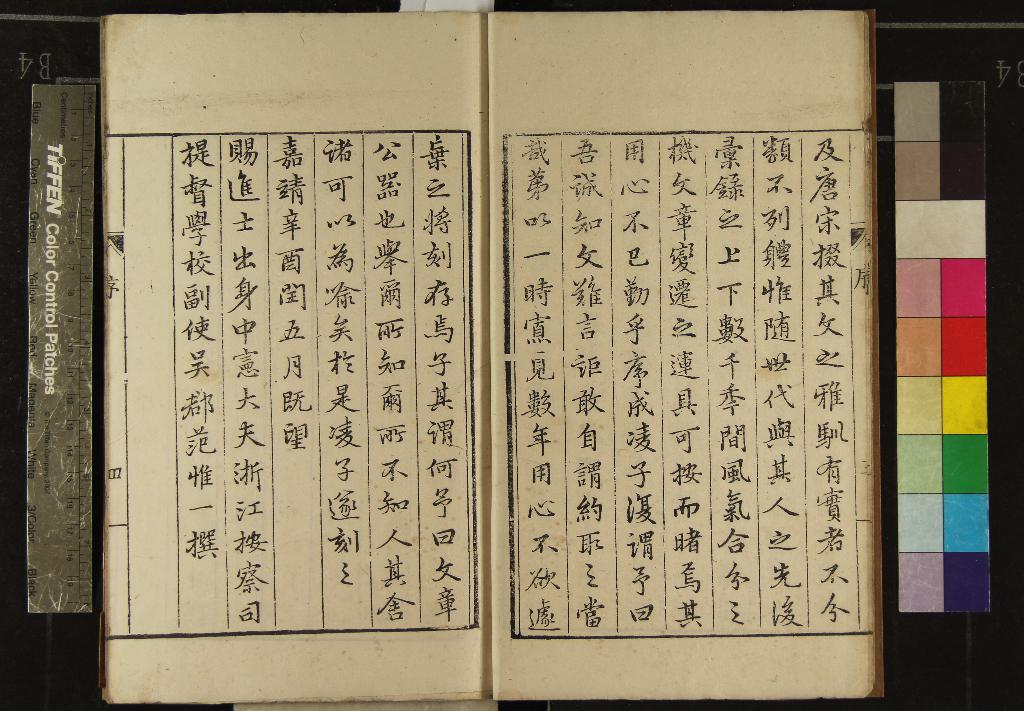 及唐宋掇其文之雅馴有實者不分
類不列體惟隨世代與其人之先後
彙錄之上下數千季間風氣合分之
機文章變遷之運具可按而睹焉其
用心不已勤乎序成凌子復謂予曰
吾誠知文難言詎敢自謂約取之當
哉第以一時寡見數年用心不欲遽
棄之將刻存焉子其謂何予曰文章
公器也舉爾所知爾所不知人其舍
諸可以為喻矣於是凌子遂刻之
嘉靖辛酉閏五月既望
賜進士出身中憲大夫浙江按察司
提督學校副使吳郡范惟一撰
序
四
TIFFEN Color Control Patches
Centimetres
Blue
Cyan
Green
Yellow
Red
Magenta
White
3/Color
Black
B4